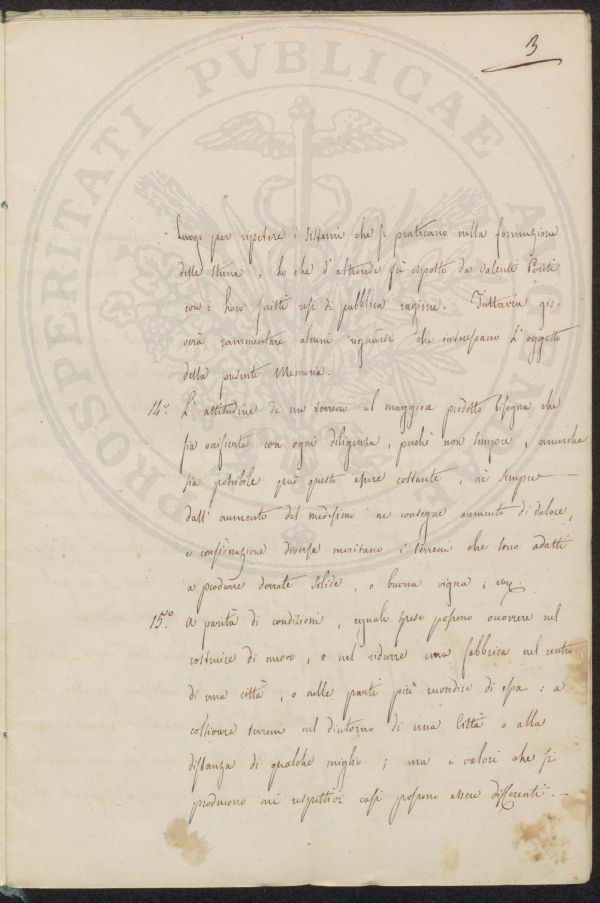 3
PROSPERITATI PVBLICAE AVGENDAE
luogo per ripetere i sistemi che si praticano nella formazione
delle stime, lo che d'altronde fù esposto da valenti Periti
con i loro scritti resi di pubblica ragione. Tuttavia gio=
verà rammentare alcuni riguardi che interessano l'oggetto
della presente Memoria.
14.° L'attitudine di un terreno al maggiore prodotto bisogna che
sia verificata con ogni diligenza, perchè non sempre, ancorchè
sia possibile può questo essere costante, nè sempre
dall'aumento del medesimo ne consegue aumento di valore,
e considerazione diversa meritano i terreni che sono adatti
a produrre derrate solide, o buona vigna; ecc.
15.° A parità di condizioni, eguali spese possono occorrere nel
costruire di nuovo, o nel ridurre una fabbrica nel centro
di una città, o nelle parti più recondite di essa: a
coltivare terreni nel dintorno di una Città o alla
distanza di qualche miglio; ma i valori che si
producono nei rispettivi casi possono essere differenti. –